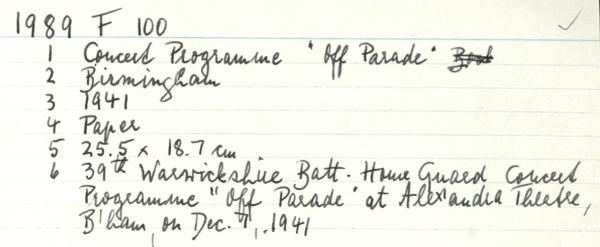 1989 F 100
1 Concert Programme "Off Parade"
2 Birmingham
3 1941
4 Paper
5 25.5 x 18.7 cm
6 39th Warwickshire Batt. Home Guard Concert
Programme "Off Parade" at Alexandra Theatre,
B'ham, on Dec. 7, 1941